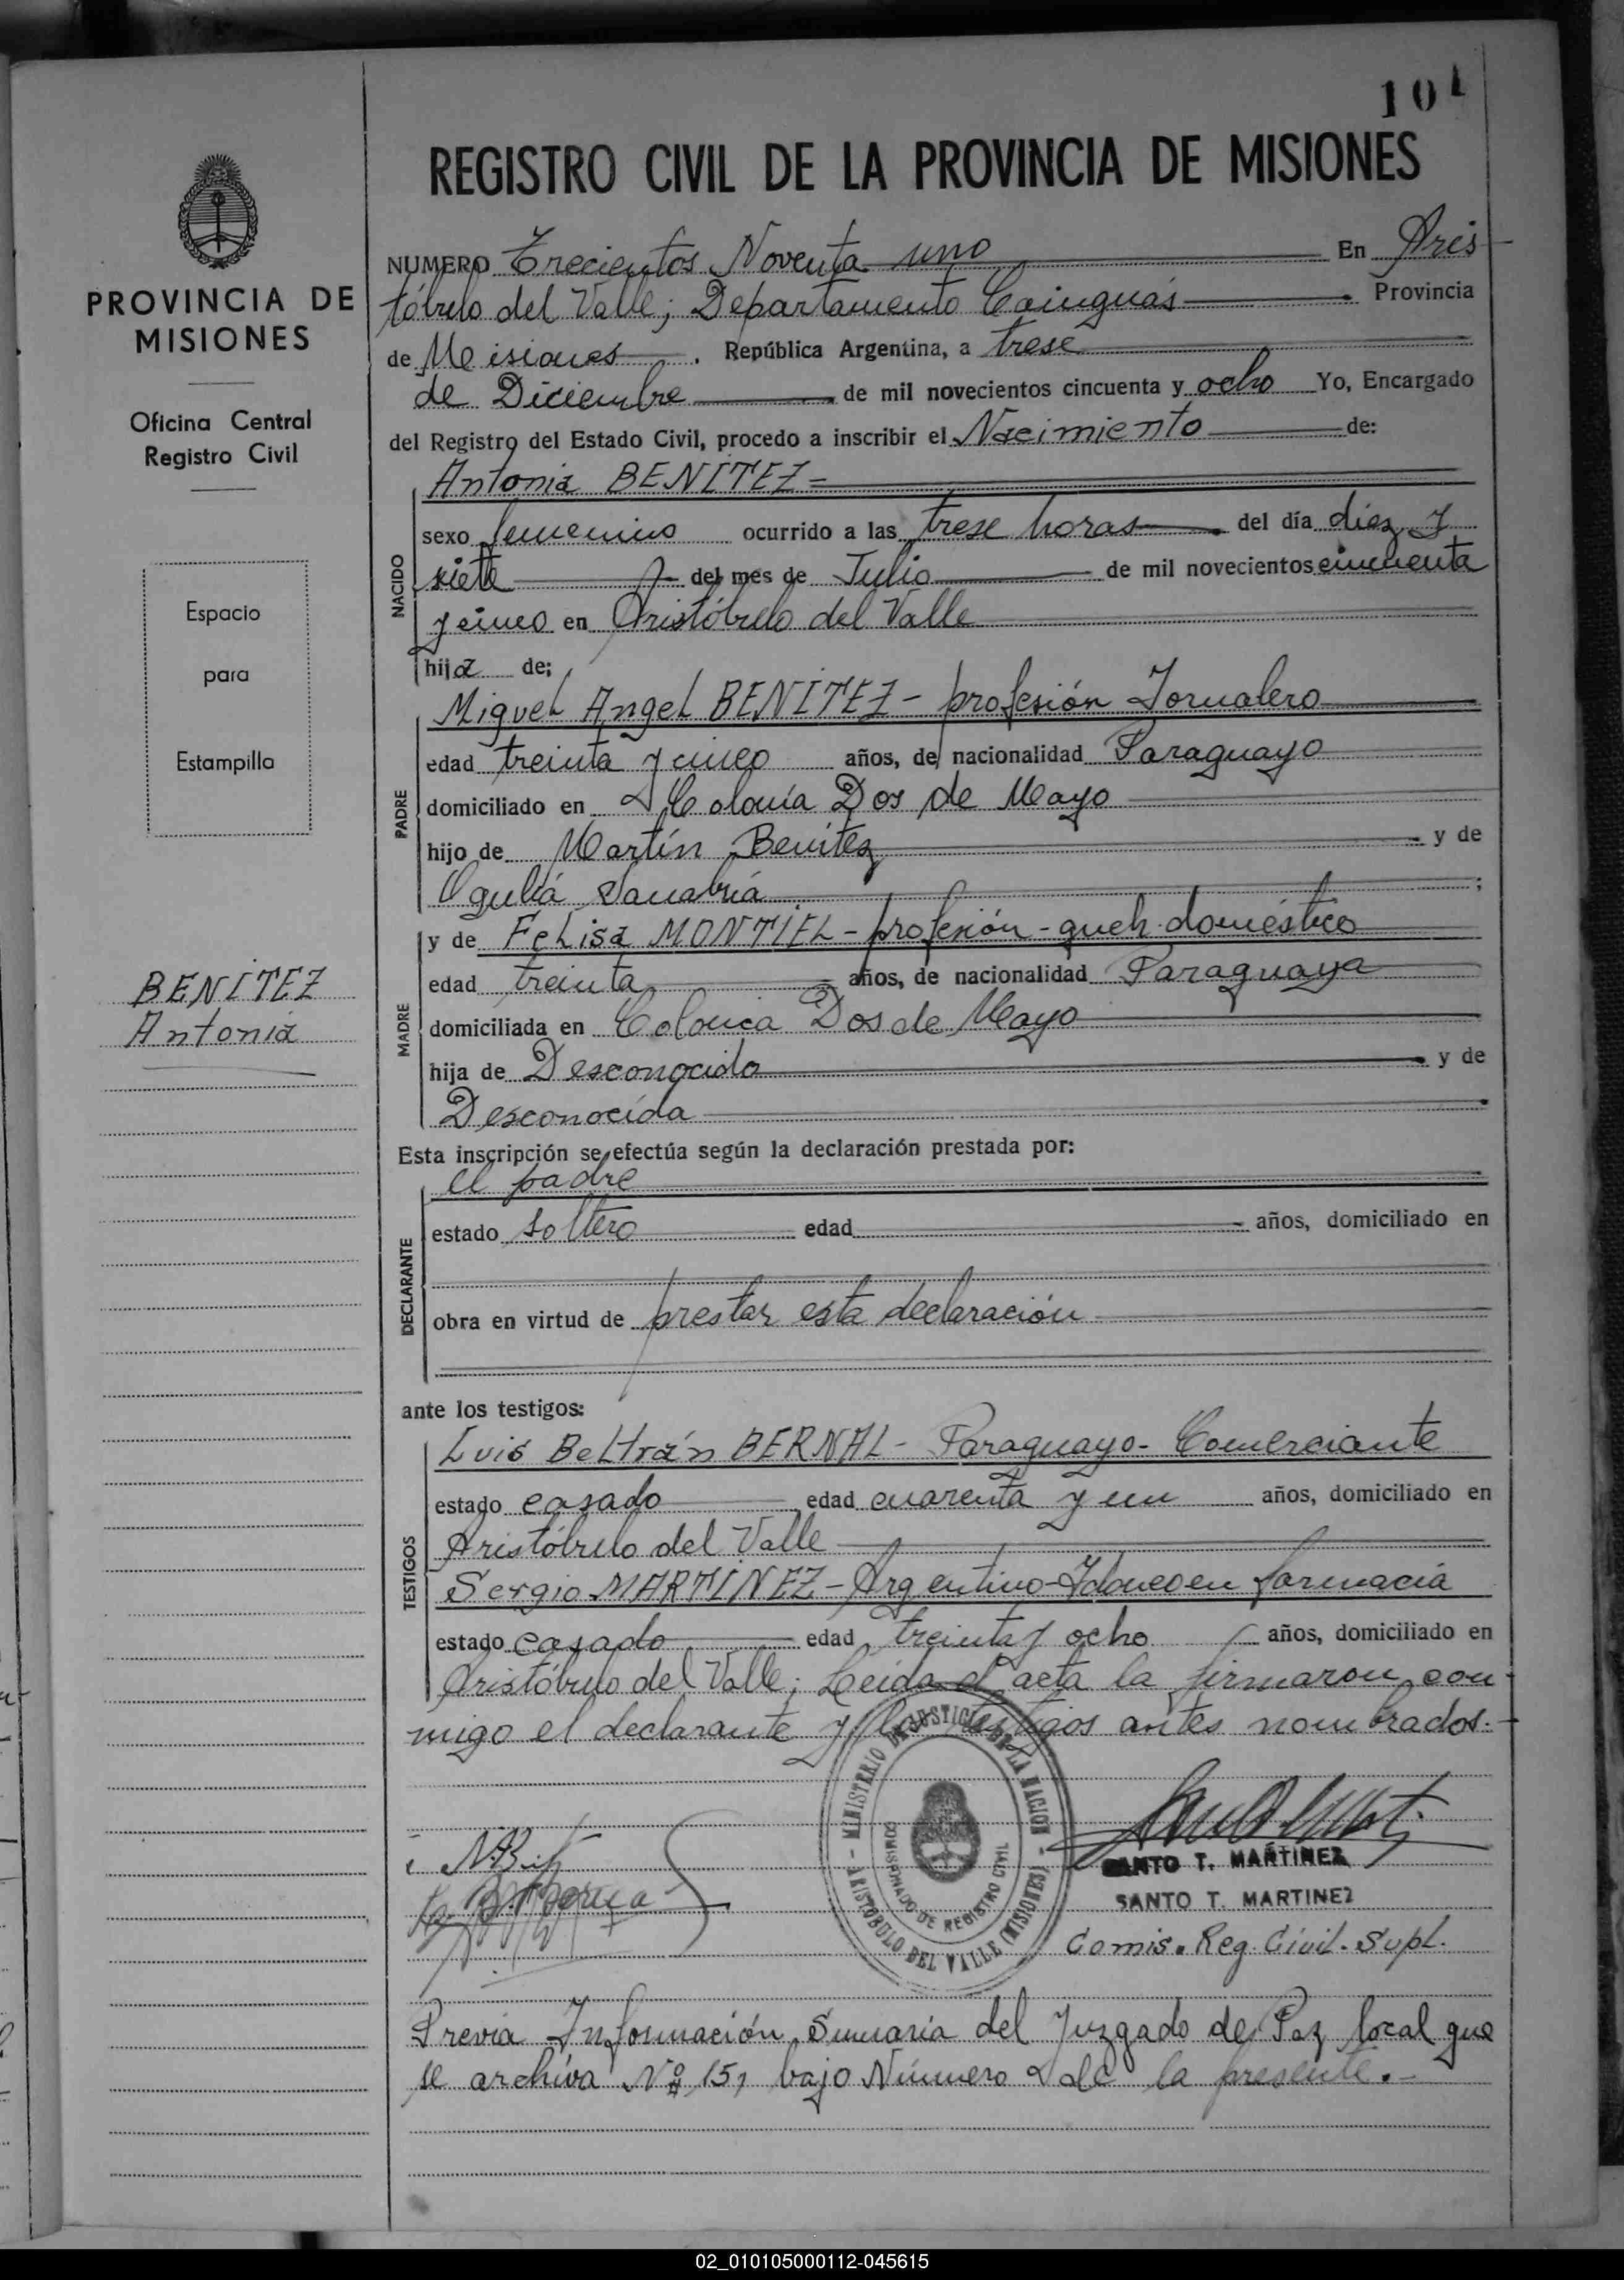 101
REGISTRO CIVIL DE LA PROVINCIA DE MISIONES
NUMERO Trecientos Noventa uno En Aris
tóbulo del Valle; Departamento Cainguás Provincia
de Misiones. República Argentina, a trese
de Diciembre de mil novecientos cincuenta y ocho Yo, Encargado
del Registro del Estado Civil, procedo a inscribir el Nacimiento de:
Antonia BENÍTEZ
NACIDO
sexo femenino ocurrido a las trese horas del día diez y
siete del mes de Julio de mil novecientos cincuenta
y cinco en Aristóbulo del Valle
hija de;
PADRE
Miguel Angel BENÍTEZ - profesión Jornalero
edad treinta y cinco años, de nacionalidad Paraguayo
domiciliado en Colonia Dos de Mayo
hijo de Martín Benítez y de
Sanabria;
MADRE
y de Felisa MONTIEL - profesión - queh. doméstico
edad treinta años, de nacionalidad Paraguaya
domiciliada en Colonia Dos de Mayo
hija de Desconocido y de
Desconocida
Esta inscripción se efectúa según la declaración prestada por:
DECLARANTE
el padre
estado soltero edad años, domiciliado en
obra en virtud de prestar esta declaración
ante los testigos:
TESTIGOS
Luis Beltrán BERNAL - Paraguayo - Comerciante
estado casado edad cuarenta y un años, domiciliado en
Aristóbulo del Valle
Sergio MARTÍNEZ - Argentino - Idoneo en farmacia
estado casado edad treinta y ocho años, domiciliado en
Aristóbulo del Valle; Leída el acta la firmaron con
migo el declarante y los testigos antes nombrados.
- MINISTERIO DE JUSTICIA DE LA NACION -
ARISTOBULO DEL VALLE (MISIONES)
COMISIONADO DE REGISTRO CIVIL
SANTO T. MARTINEZ
SANTO T. MARTINEZ
Comis. Reg. Civil. Supl.
Previa Información Sumaria del Juzgado de Paz local que
se archiva Nº 151 bajo Número de la presente.
PROVINCIA DE
MISIONES
Oficina Central
Registro Civil
Espacio
para
Estampilla
BENÍTEZ
Antonia
02_010105000112-045615